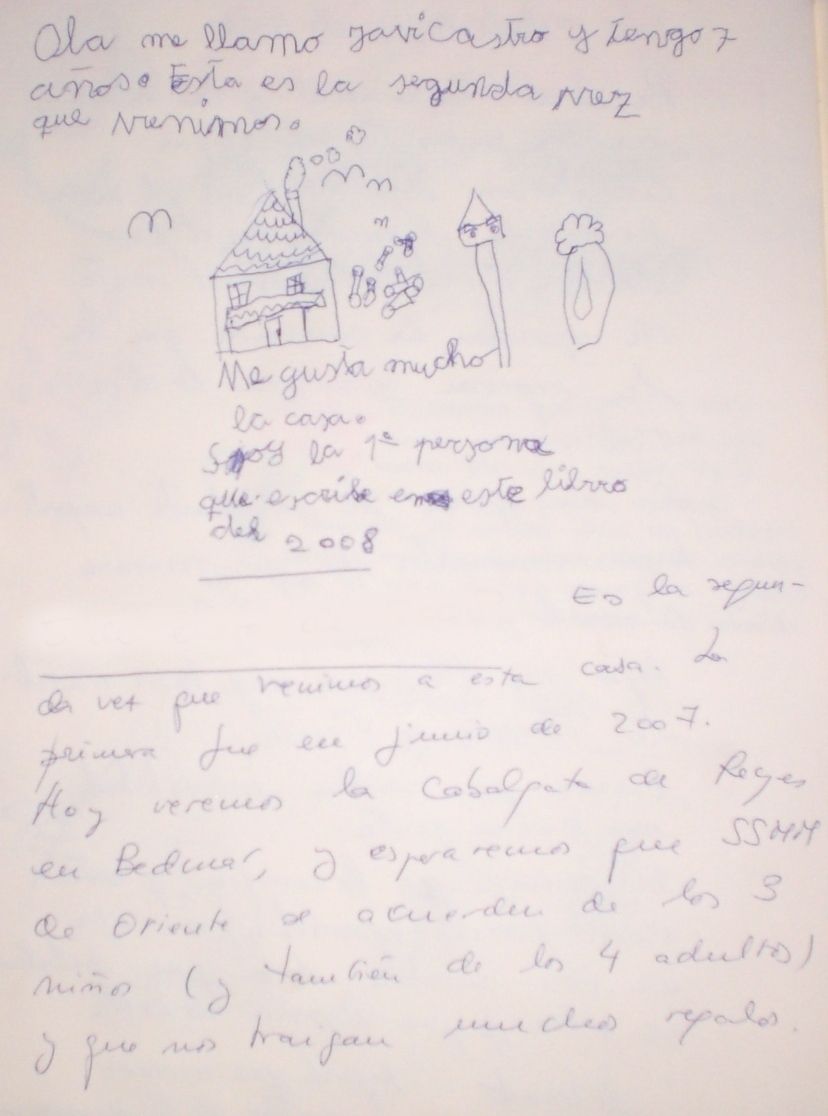 Ola me llamo Javicastro y tengo 7
años. Esta es la segunda vez
que venimos.
Me gusta mucho
la casa.
Soy la 1ª persona
que escribe en este libro
del 2008
Es la segun-
da vez que venimos a esta casa. La
primera fue en junio de 2007.
Hoy veremos la Cabalgata de Reyes
en Bedmar, y esperaremos que SSMM
de Oriente se acuerden de los 3
niños (y también de los 4 adultos)
y que nos traigan muchos regalos.